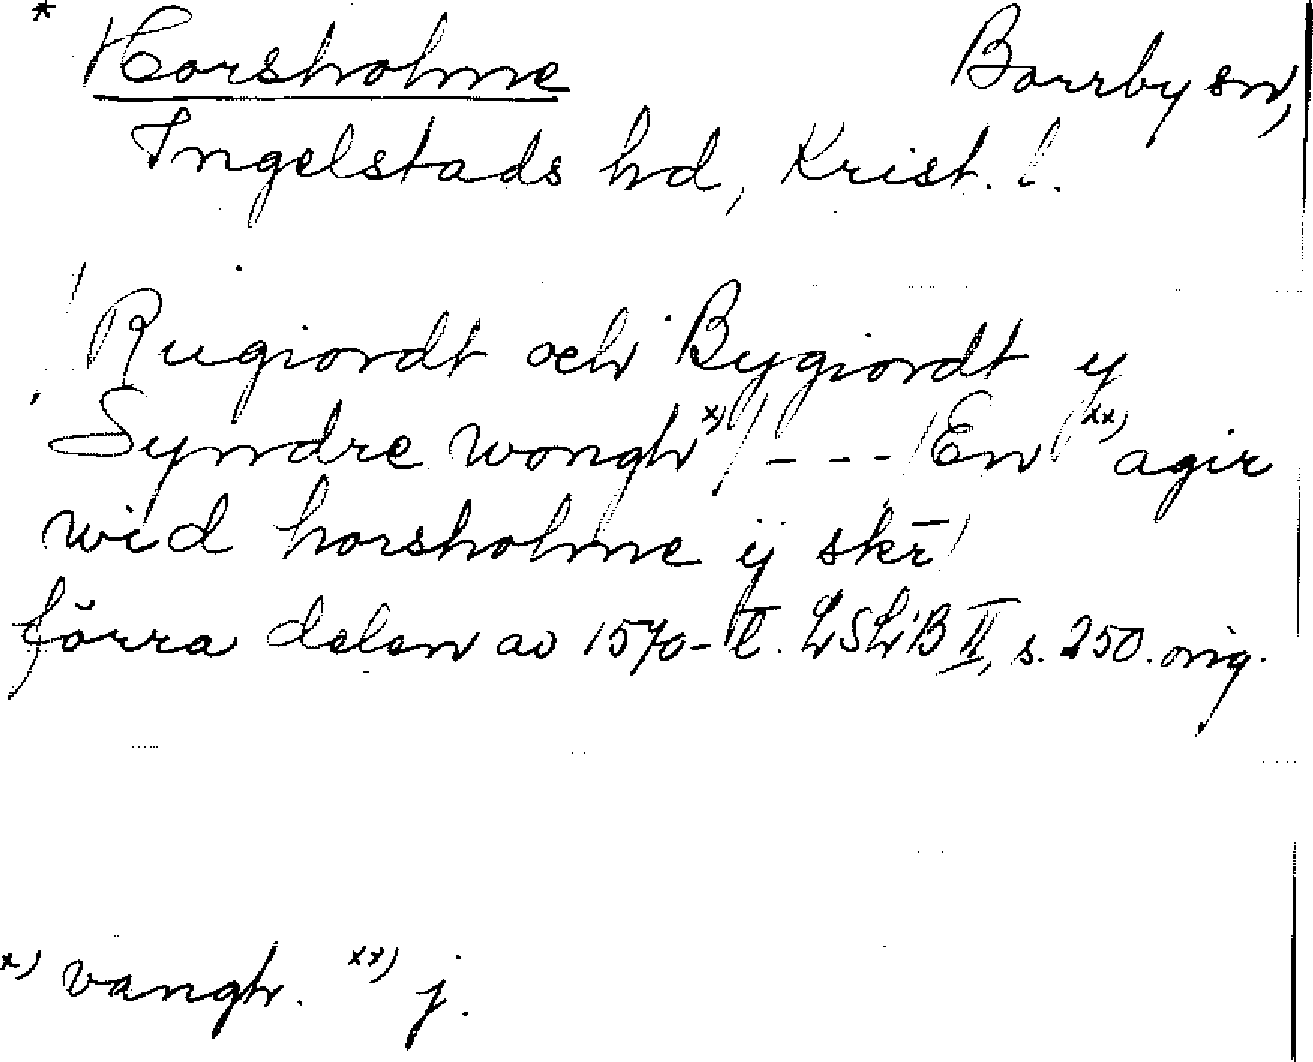 * Horsholme Borrby sn,
Ingelstads hd, Krist. l.
/Rugiordt och Bygiordt y
Syndre wongh x)/ - - - /En xx) agir
wid horsholme ij skr̄/
förra delen av 1570-t. LSLB II, s. 250. orig.
x) vangh. xx) j.